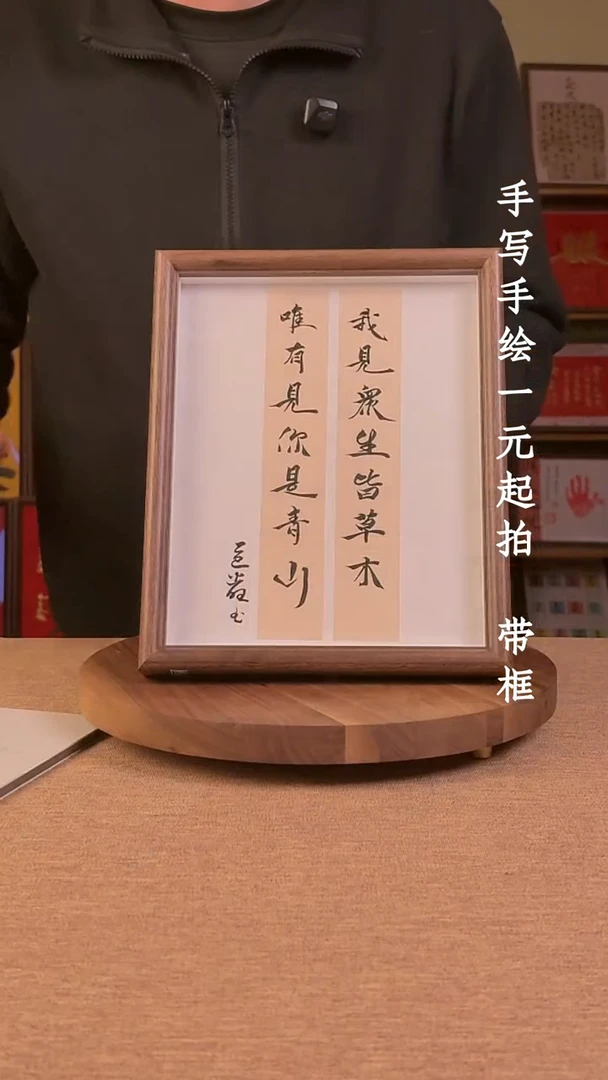 我見眾生皆草木
唯有見你是青山
手写手绘一元起拍 带框